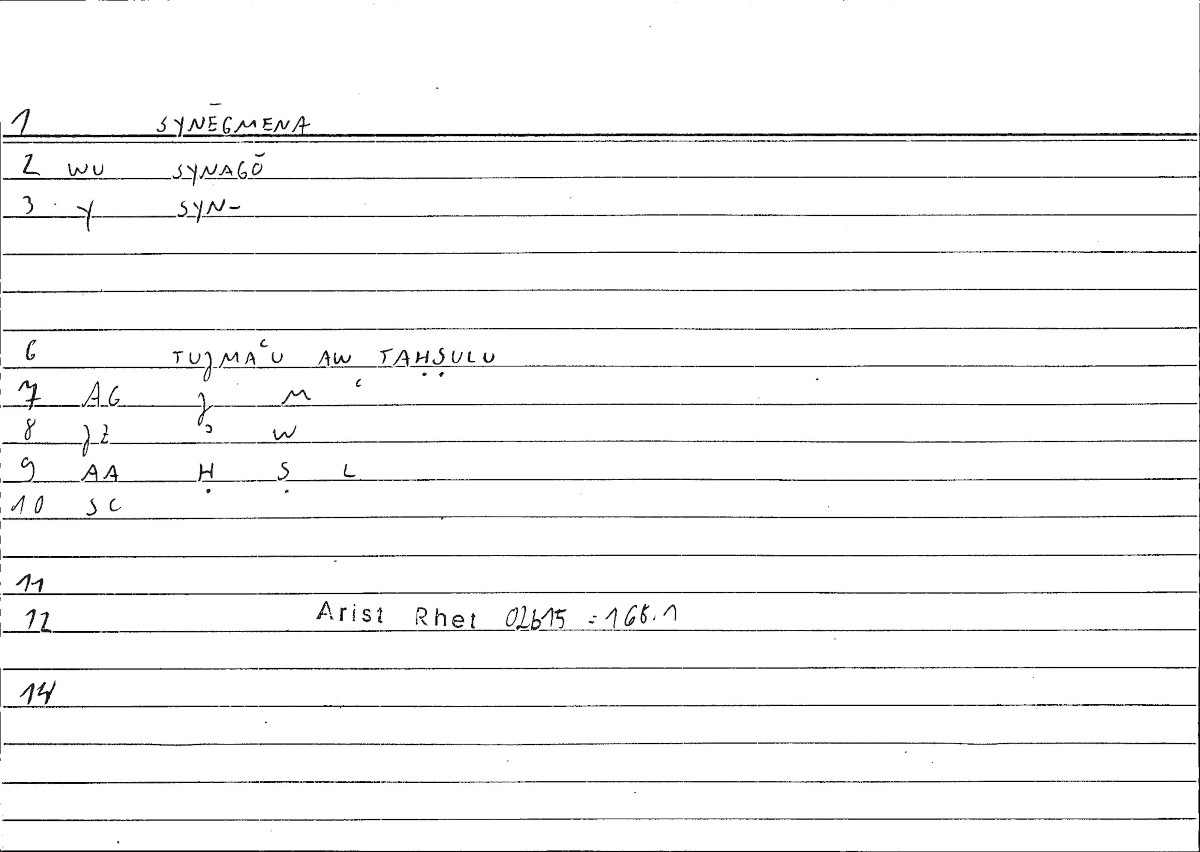 1 SYNĒGMENA
2 WU SYNAGŌ
3 Y SYN-
6 TUJMAʿU AW TAḤṢULU
7 AG J M ʿ
8 JZ ʾ W
9 AA Ḥ Ṣ L
10 SC
11
12 Arist Rhet 02b15 = 168.1
14